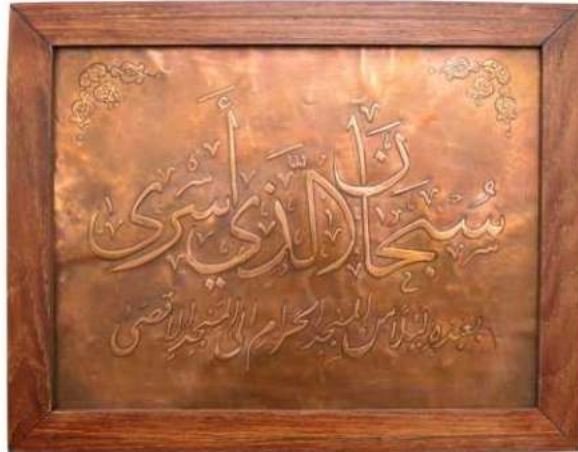 سُبْحَانَ الَّذِي أَسْرَى
بعبده ليلاً من المسجد الحرام الى المسجد الاقصى